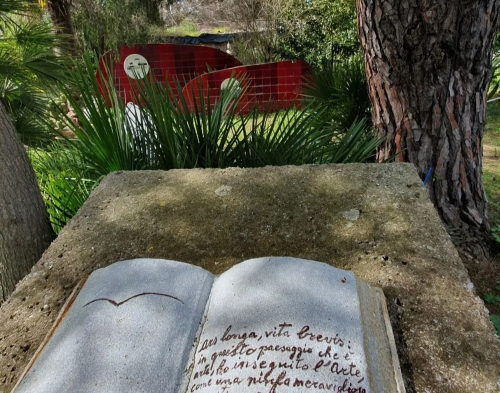 Ars longa, vita brevis:
in questo paesaggio che è
arte, ho inseguito l'Arte,
come una ninfa meravigliosa